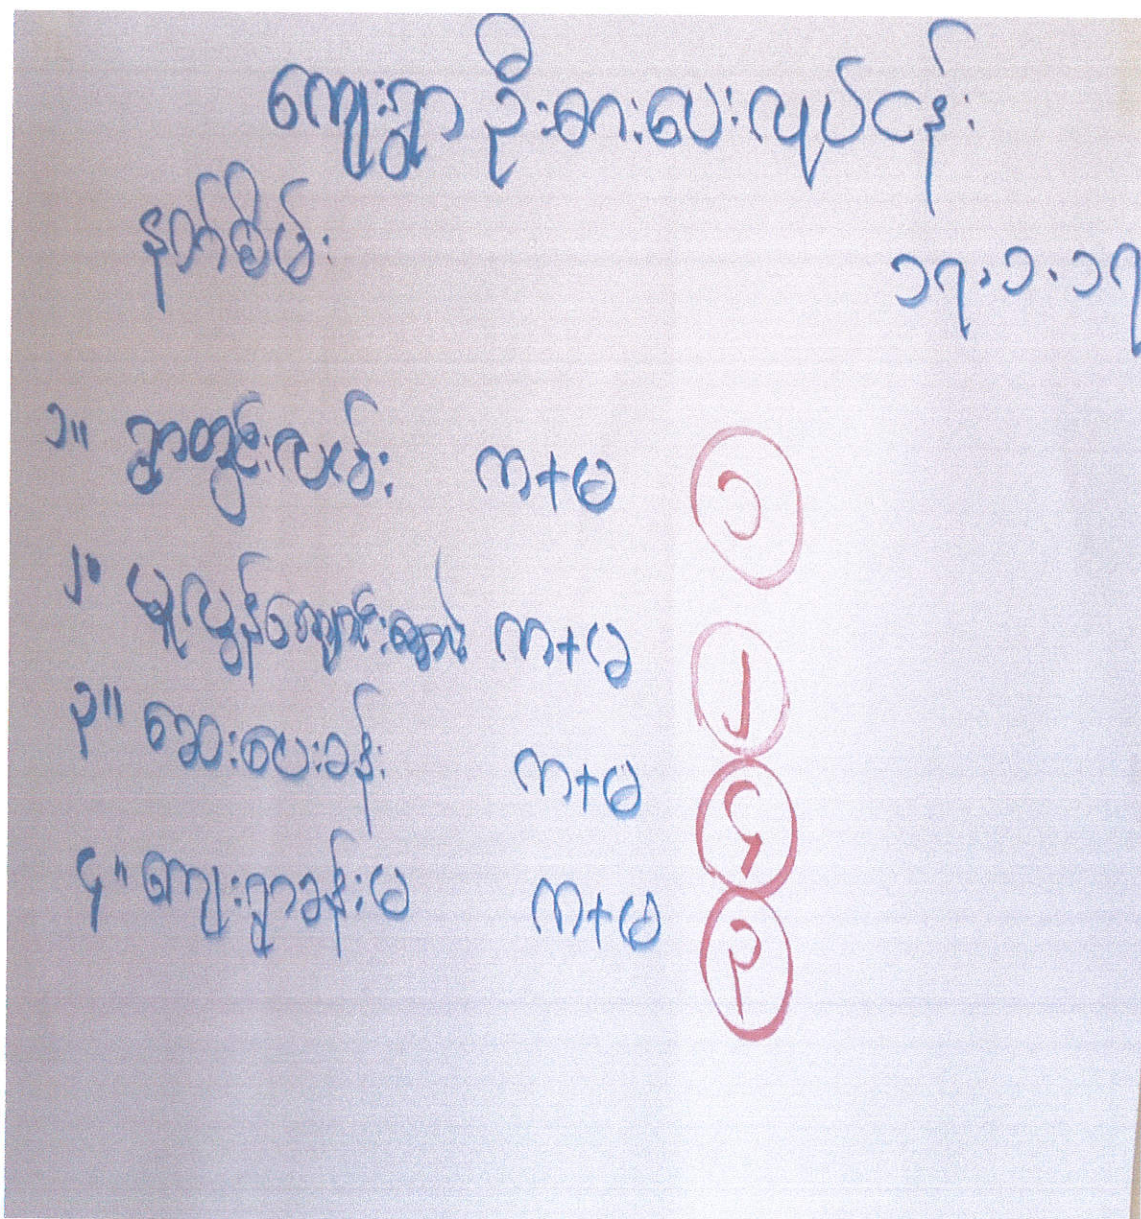 ကျေးရွာ ဦးစားပေးလုပ်ငန်း
နတ်စိမ်း
၁၇.၁.၁၇
၁။ ရွာတွင်းလမ်း က+မ ၁
၂။ မူလွန်ကျောင်းဆောင် က+မ ၂
၃။ ဆေးပေးခန်း က+မ ၄
၄။ ကျေးရွာခန်းမ က+မ ၃